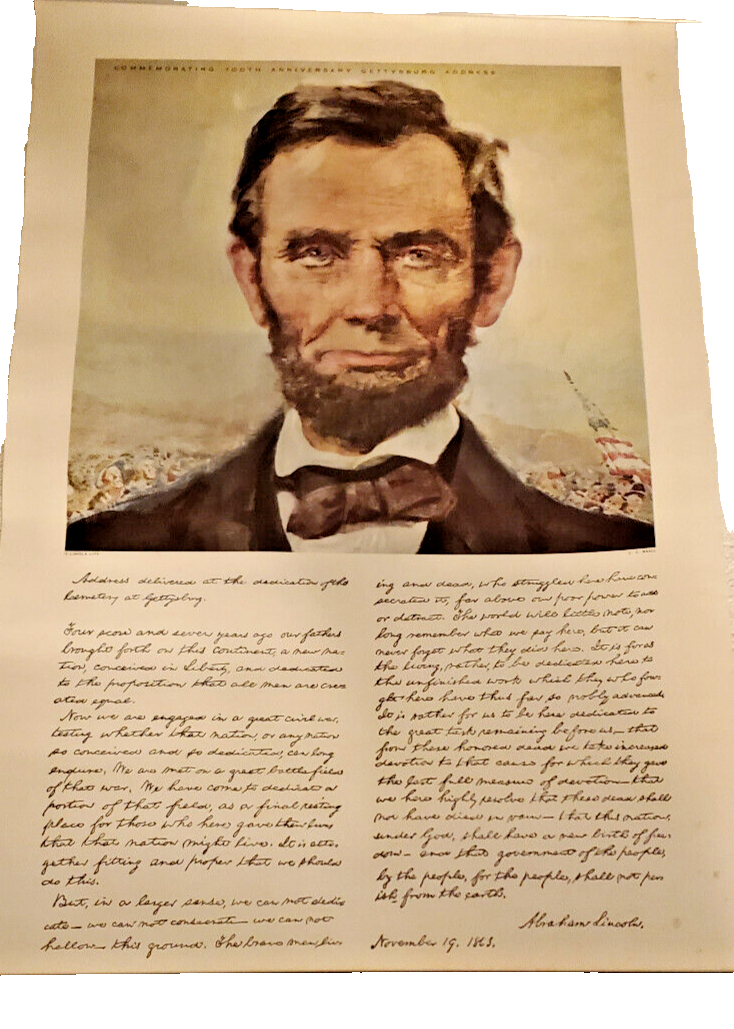 COMMEMORATING 100TH ANNIVERSARY GETTYSBURG ADDRESS
Address delivered at the dedication of the
Cemetery at Gettysburg.
Four score and seven years ago our fathers
brought forth on this continent, a new na-
tion, conceived in Liberty, and dedicated
to the proposition that all men are cre-
ated equal.
Now we are engaged in a great civil war,
testing whether that nation, or any nation
so conceived and so dedicated, can long
endure. We are met on a great battle-field
of that war. We have come to dedicate a
portion of that field, as a final resting
place for those who here gave their lives
that that nation might live. It is alto-
gether fitting and proper that we should
do this.
But, in a larger sense, we can not dedi-
cate— we can not consecrate— we can not
hallow— this ground. The brave men, liv-
ing and dead, who struggled here have con-
secrated it, far above our poor power to add
or detract. The world will little note, nor
long remember what we say here, but it can
never forget what they did here. It is for us
the living, rather, to be dedicated here to
the unfinished work which they who fou-
ght here have thus far so nobly advanced.
It is rather for us to be here dedicated to
the great task remaining before us— that
from these honored dead we take increased
devotion to that cause for which they gave
the last full measure of devotion— that
we here highly resolve that these dead shall
not have died in vain— that this nation,
under God, shall have a new birth of free-
dom— and that government of the people,
by the people, for the people, shall not per-
ish from the earth.
Abraham Lincoln.
November 19. 1863.